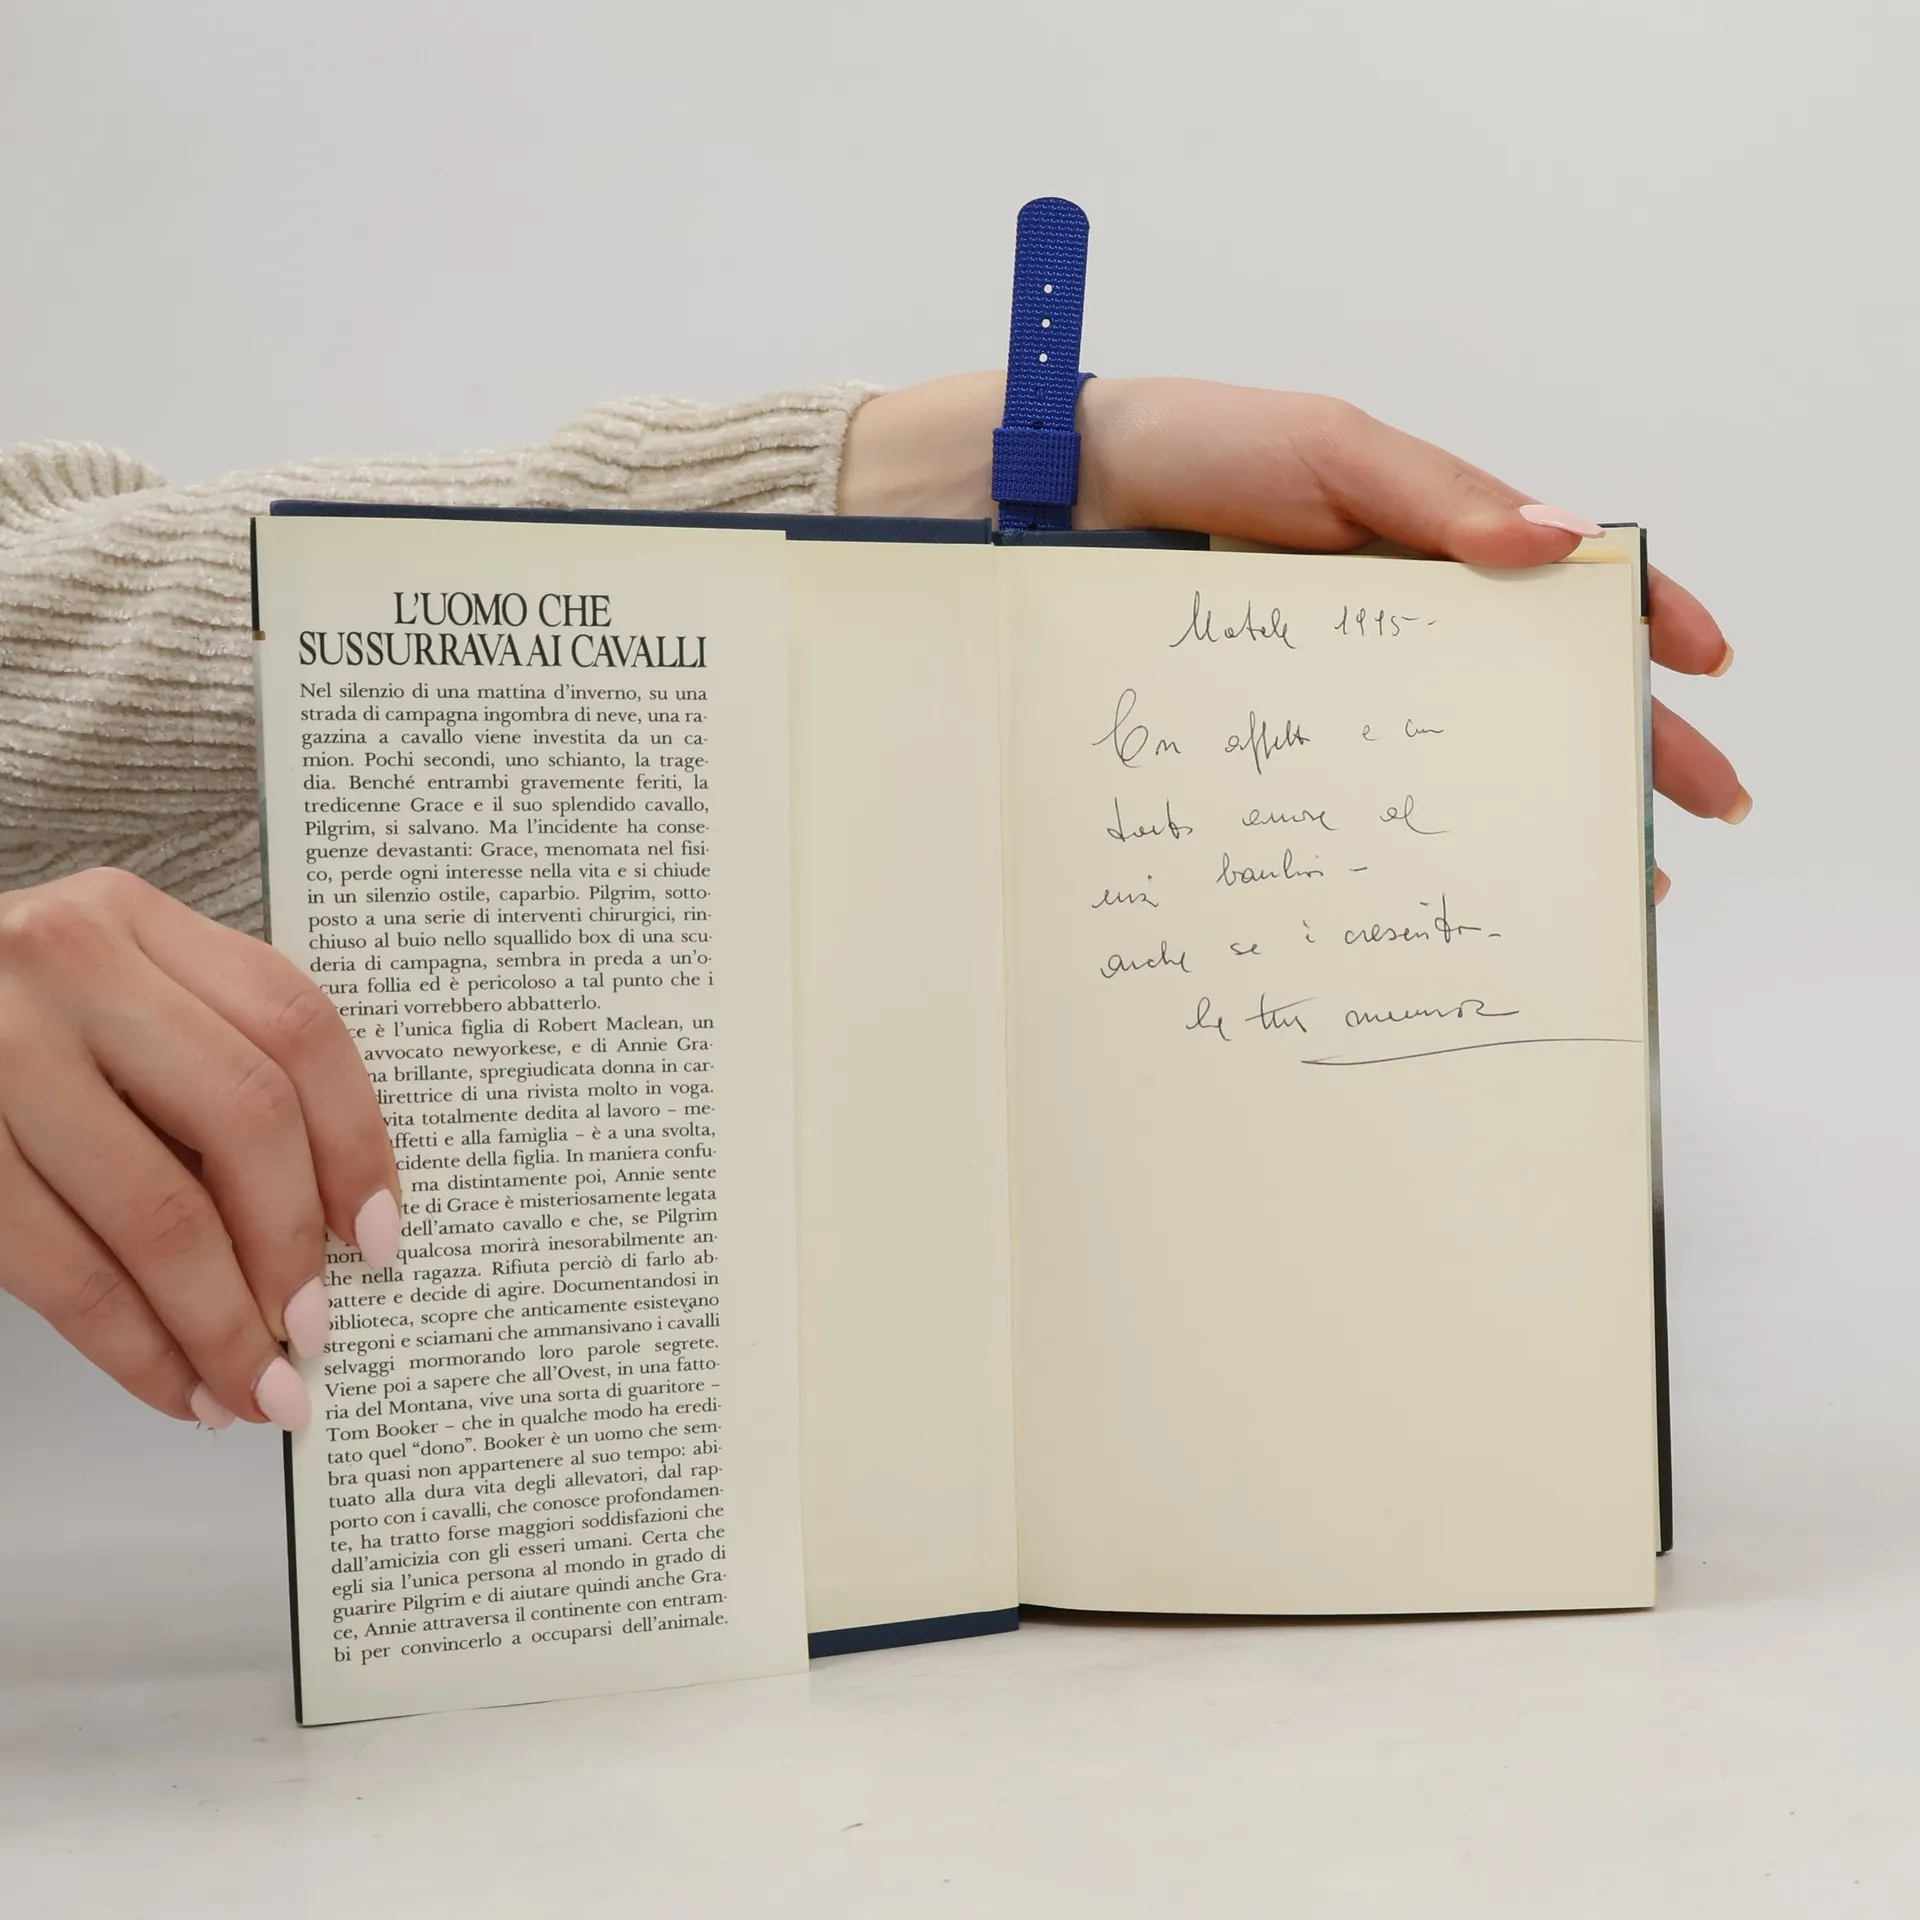 L'UOMO CHE
SUSSURRAVA AI CAVALLI
Nel silenzio di una mattina d'inverno, su una
strada di campagna ingombra di neve, una ra-
gazzina a cavallo viene investita da un ca-
mion. Pochi secondi, uno schianto, la trage-
dia. Benché entrambi gravemente feriti, la
tredicenne Grace e il suo splendido cavallo,
Pilgrim, si salvano. Ma l'incidente ha conse-
guenze devastanti: Grace, menomata nel fisi-
co, perde ogni interesse nella vita e si chiude
in un silenzio ostile, caparbio. Pilgrim, sotto-
posto a una serie di interventi chirurgici, rin-
chiuso al buio nello squallido box di una scu-
deria di campagna, sembra in preda a un'o-
cura follia ed è pericoloso a tal punto che i
erinari vorrebbero abbatterlo.
ce è l'unica figlia di Robert Maclean, un
avvocato newyorkese, e di Annie Gra-
na brillante, spregiudicata donna in car-
direttrice di una rivista molto in voga.
vita totalmente dedita al lavoro – me-
ffetti e alla famiglia – è a una svolta,
cidente della figlia. In maniera confu-
ma distintamente poi, Annie sente
te di Grace è misteriosamente legata
dell'amato cavallo e che, se Pilgrim
mori qualcosa morirà inesorabilmente an-
che nella ragazza. Rifiuta perciò di farlo ab-
battere e decide di agire. Documentandosi in
biblioteca, scopre che anticamente esistevano
stregoni e sciamani che ammansivano i cavalli
selvaggi mormorando loro parole segrete.
Viene poi a sapere che all'Ovest, in una fatto-
ria del Montana, vive una sorta di guaritore –
Tom Booker – che in qualche modo ha eredi-
tato quel “dono”. Booker è un uomo che sem-
bra quasi non appartenere al suo tempo: abi-
tuato alla dura vita degli allevatori, dal rap-
porto con i cavalli, che conosce profondamen-
te, ha tratto forse maggiori soddisfazioni che
dall'amicizia con gli esseri umani. Certa che
egli sia l'unica persona al mondo in grado di
guarire Pilgrim e di aiutare quindi anche Gra-
ce, Annie attraversa il continente con entram-
bi per convincerlo a occuparsi dell'animale.
Natale 1995--
Con affetto e con
tanto amore al
mio bambino -
anche se è cresciuto -
la tua mamma